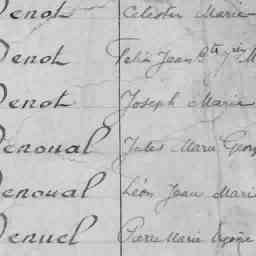 Denot Celestin Marie
Denot Félix Jean Bte
Denot Joseph Marie
Denoual Jules Marie Georg
Denoual Léon Jean Mari
Denuel Pierre Marie